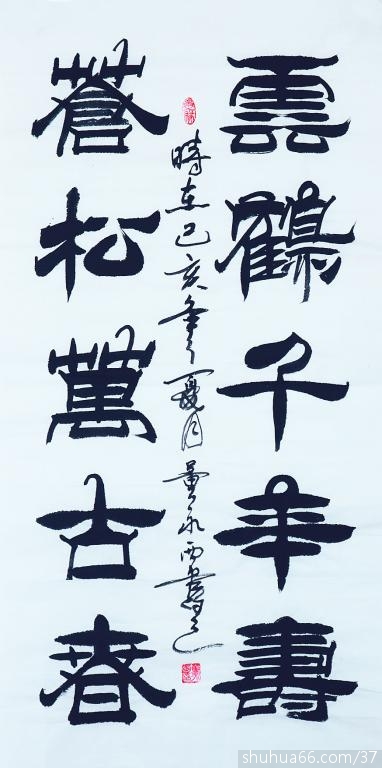 雲鶴千年壽
蒼松萬古春
時在己亥年夏月董永西書
shuhua66.com/37